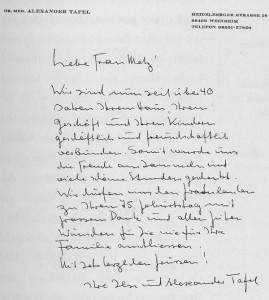 DR. MED. ALEXANDER TAFEL
HEIDELBERGER STRASSE
WEINHEIM
TELEFON
Liebe Frau Metz!
Wir sind nun seit über 40
Jahren Ihrem Haus, Ihrem
Geschäft und Ihren Kindern
geschäftlich und freundschaftlich
verbunden. Somit wurde uns
die Freude am Sammeln und
viele schöne Stunden
Wir dürfen uns den
zu Ihrem 75. Geburtstag mit
grossem Dank und allen guten
Wünschen für Sie wie für Ihre
Familie anschliessen.
Mit sehr herzlichen Grüssen!
Ihre und Alexander Tafel